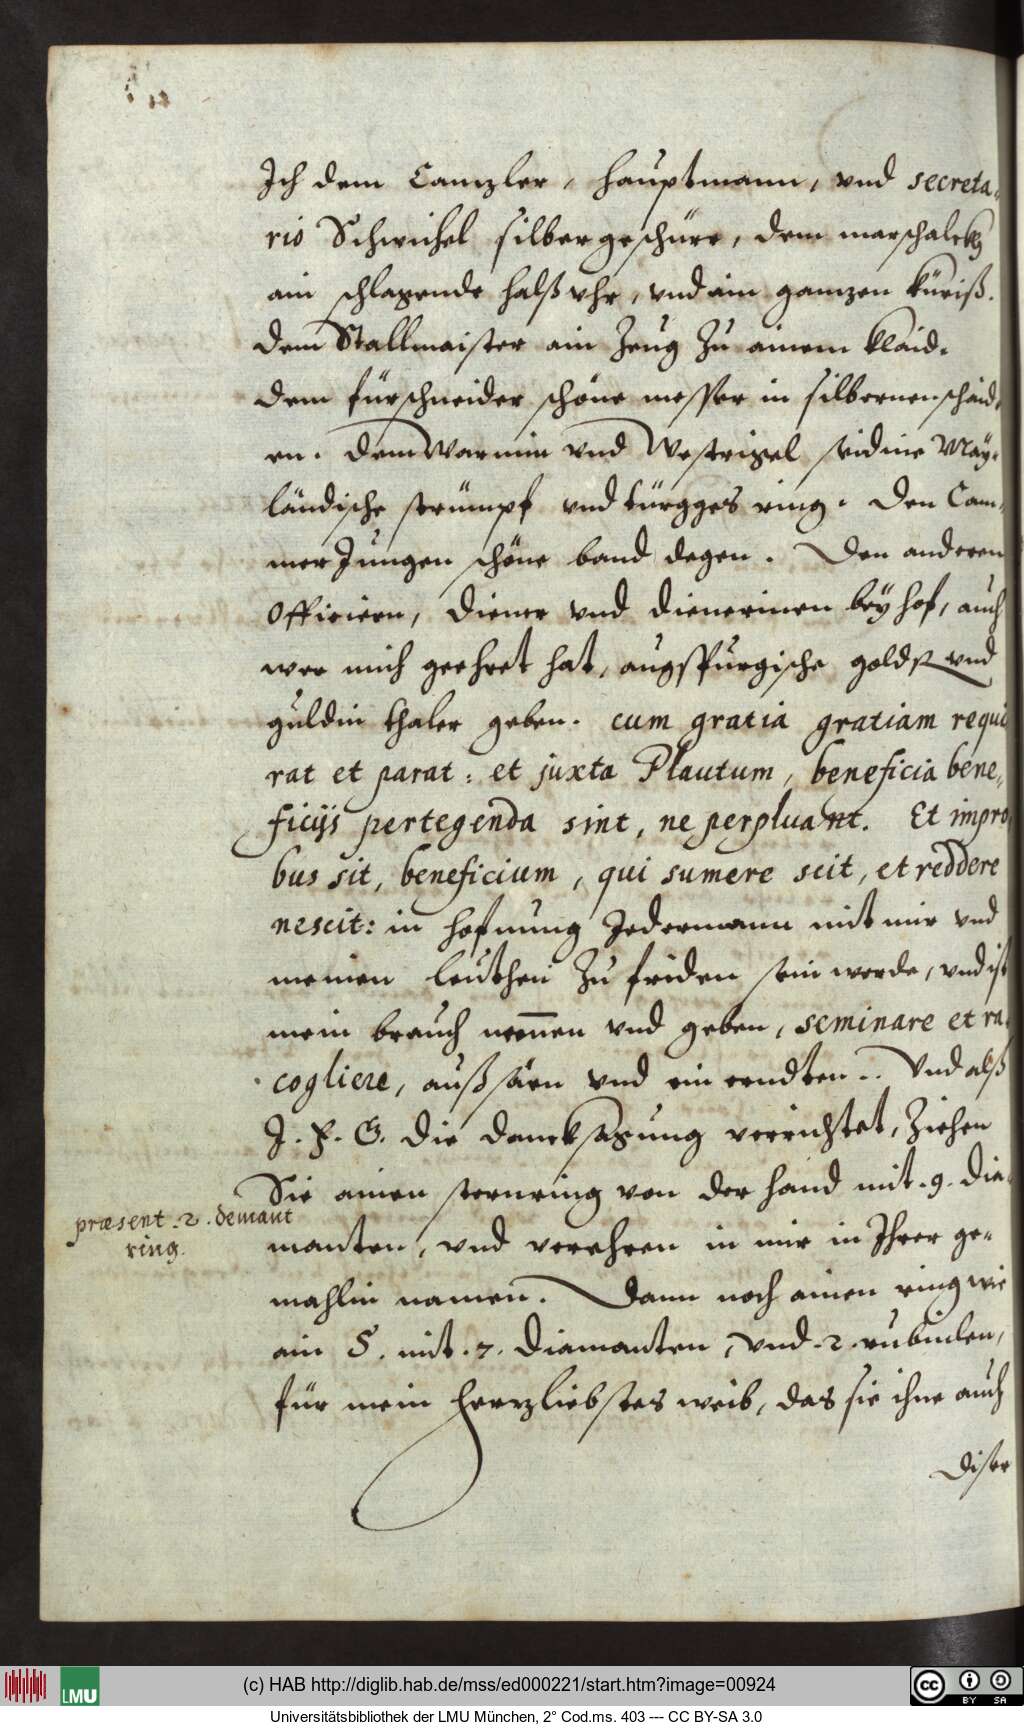 Ich dem Cantzler, hauptmann, vnd secreta-
rio Schwichel silbergeschürr, dem marschalckh
ain schlagende halß vhr, vnd ain gantzen küriß.
dem Stallmaister ain Zeug Zu ainem klaid.
dem fürschneider schöne messer in silbernen schaid-
en. dem Warnin vnd Westrigel seidine May-
ländische strümpf vnd türgges ring. Den Cam-
mer Jungen schöne band degen. Den anderen
Officiern, diener vnd dienerinen bey hof, auch
wer mich geehret hat, augspurgische goldß vnd
guldin thaler geben. cum gratia gratiam requi
rat et parat: et juxta Plautum, beneficia bene-
ficijs pertegenda sint, ne perpluant. Et impro
bus sit, beneficium, qui sumere scit, et reddere
nescit: in hofnung Jederman mit mir vnd
meinen leuthen Zu friden sein werde, vnd ist
mein brauch nemmen vnd geben, seminare et ra
cogliere, außsäen vnd ein erndten.. Vnd alß
J. F. G. die dancksagung verrichtet, Ziehen
Sie ainen sternring von der hand mit .9. dia-
præsent .2. demant
ring.
manten, vnd verehren in mir in Ihrer ge-
mahlin namen. Dann noch ainen ring wie
ain S. mit .7. diamanten, vnd .2. rubinlen,
für mein hertzliebstes weib, das sie ihne auch
diser
(c) HAB http://diglib.hab.de/mss/ed000221/start.htm?image=00924
Universitätsbibliothek der LMU München, 2° Cod.ms. 403 --- CC BY-SA 3.0
LMU
cc BY SA